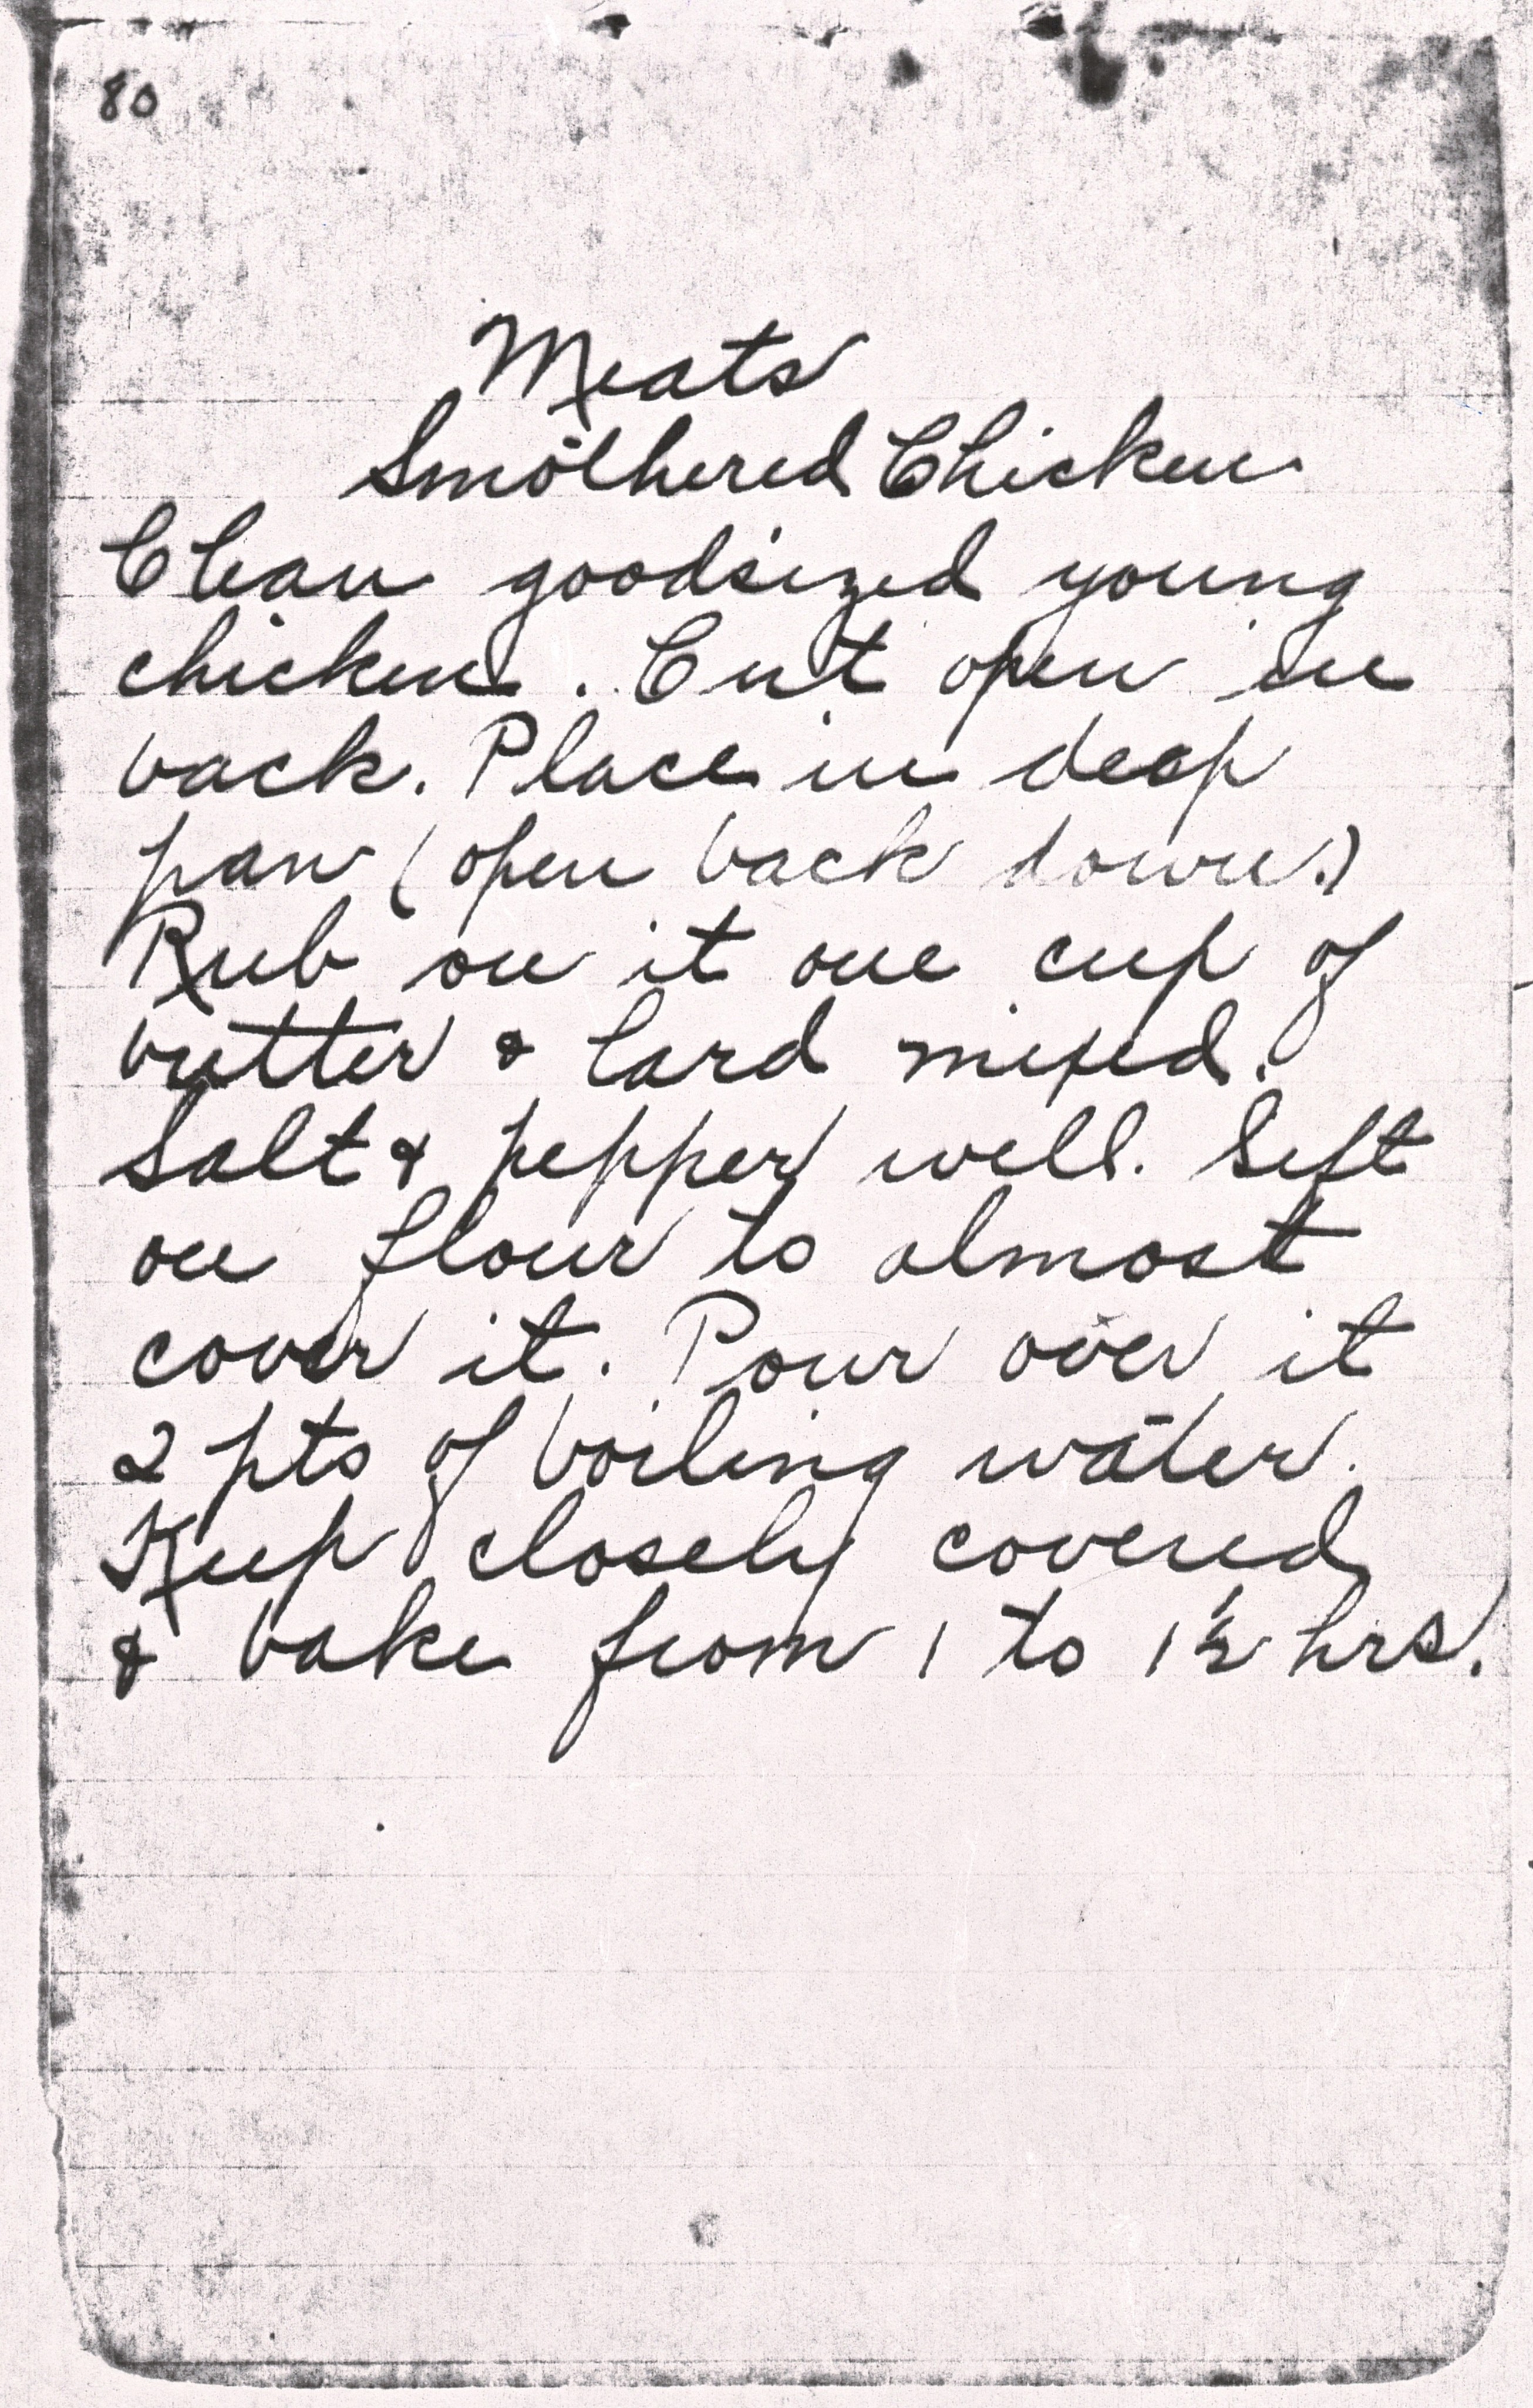 80
Meats
Smothered Chicken
Clean goodsized young
chicken. Cut open in
back. Place in deep
pan (open back down.)
Rub on it one cup of
butter & lard mixed.
Salt & pepper well. Sift
on flour to almost
cover it. Pour over it
2 pts of boiling water.
Keep closely covered
& bake from 1 to 1½ hrs.